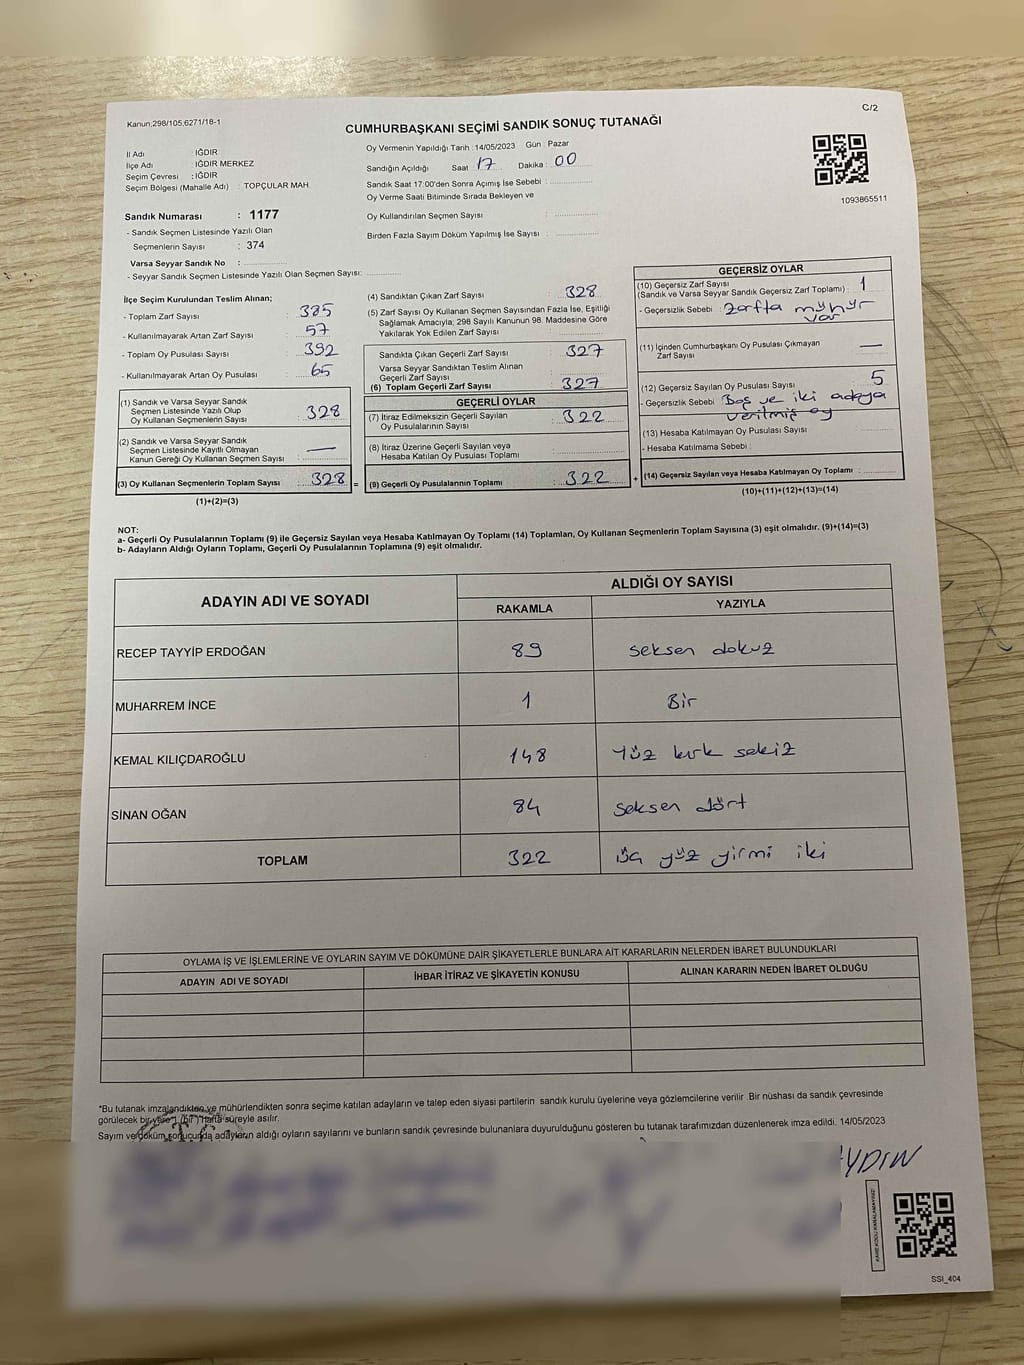 Kanun;298/105,6271/18-1
C/2
CUMHURBAŞKANI SEÇİMİ SANDIK SONUÇ TUTANAĞI
İl Adı : IĞDIR
İlçe Adı : IĞDIR MERKEZ
Seçim Çevresi : IĞDIR
Seçim Bölgesi (Mahalle Adı) : TOPÇULAR MAH.
Sandık Numarası : 1177
- Sandık Seçmen Listesinde Yazılı Olan
Seçmenlerin Sayısı : 374
Varsa Seyyar Sandık No :
- Seyyar Sandık Seçmen Listesinde Yazılı Olan Seçmen Sayısı:
Oy Vermenin Yapıldığı Tarih : 14/05/2023 Gün : Pazar
Sandığın Açıldığı Saat 17 Dakika : 00
Sandık Saat 17:00'den Sonra Açımış İse Sebebi :
Oy Verme Saati Bitiminde Sırada Bekleyen ve
Oy Kullandırılan Seçmen Sayısı :
Birden Fazla Sayım Döküm Yapılmış İse Sayısı :
1093865511
İlçe Seçim Kurulundan Teslim Alınan;
- Toplam Zarf Sayısı : 385
- Kullanılmayarak Artan Zarf Sayısı : 57
- Toplam Oy Pusulası Sayısı : 392
- Kullanılmayarak Artan Oy Pusulası : 65
(1) Sandık ve Varsa Seyyar Sandık
Seçmen Listesinde Yazılı Olup
Oy Kullanan Seçmenlerin Sayısı : 328
(2) Sandık ve Varsa Seyyar Sandık
Seçmen Listesinde Kayıtlı Olmayan
Kanun Gereği Oy Kullanan Seçmen Sayısı : —
(3) Oy Kullanan Seçmenlerin Toplam Sayısı : 328 =
(1)+(2)=(3)
(4) Sandıktan Çıkan Zarf Sayısı : 328
(5) Zarf Sayısı Oy Kullanan Seçmen Sayısından Fazla İse, Eşitliği
Sağlamak Amacıyla; 298 Sayılı Kanunun 98. Maddesine Göre
Yakılarak Yok Edilen Zarf Sayısı :
Sandıkta Çıkan Geçerli Zarf Sayısı : 327
Varsa Seyyar Sandıktan Teslim Alınan
Geçerli Zarf Sayısı :
(6) Toplam Geçerli Zarf Sayısı : 327
GEÇERLİ OYLAR
(7) İtiraz Edilmeksizin Geçerli Sayılan
Oy Pusulalarının Sayısı : 322
(8) İtiraz Üzerine Geçerli Sayılan veya
Hesaba Katılan Oy Pusulası Toplamı :
(9) Geçerli Oy Pusulalarının Toplamı : 322 +
GEÇERSİZ OYLAR
(10) Geçersiz Zarf Sayısı
(Sandık ve Varsa Seyyar Sandık Geçersiz Zarf Toplamı) : 1
- Geçersizlik Sebebi : Zarfta mühür
var
(11) İçinden Cumhurbaşkanı Oy Pusulası Çıkmayan
Zarf Sayısı —
(12) Geçersiz Sayılan Oy Pusulası Sayısı 5
- Geçersizlik Sebebi Boş ve iki adaya
verilmiş oy
(13) Hesaba Katılmayan Oy Pusulası Sayısı :
- Hesaba Katılmama Sebebi :
(14) Geçersiz Sayılan veya Hesaba Katılmayan Oy Toplamı :
(10)+(11)+(12)+(13)=(14)
NOT:
a- Geçerli Oy Pusulalarının Toplamı (9) ile Geçersiz Sayılan veya Hesaba Katılmayan Oy Toplamı (14) Toplamları, Oy Kullanan Seçmenlerin Toplam Sayısına (3) eşit olmalıdır. (9)+(14)=(3)
b- Adayların Aldığı Oyların Toplamı, Geçerli Oy Pusulalarının Toplamına (9) eşit olmalıdır.
ADAYIN ADI VE SOYADI
ALDIĞI OY SAYISI
RAKAMLA YAZIYLA
RECEP TAYYİP ERDOĞAN 89 seksen dokuz
MUHARREM İNCE 1 Bir
KEMAL KILIÇDAROĞLU 148 Yüz kırk sekiz
SİNAN OĞAN 84 seksen dört
TOPLAM 322 üç yüz yirmi iki
OYLAMA İŞ VE İŞLEMLERİNE VE OYLARIN SAYIM VE DÖKÜMÜNE DAİR ŞİKAYETLERLE BUNLARA AİT KARARLARIN NELERDEN İBARET BULUNDUKLARI
ADAYIN ADI VE SOYADI İHBAR İTİRAZ VE ŞİKAYETİN KONUSU ALINAN KARARIN NEDEN İBARET OLDUĞU
*Bu tutanak imzalandıktan ve mühürlendikten sonra seçime katılan adayların ve talep eden siyasi partilerin sandık kurulu üyelerine veya gözlemcilerine verilir .Bir nüshası da sandık çevresinde
görülecek bir yere 1 (bir) hafta süreyle asılır.
Sayım ve döküm sonucunda adayların aldığı oyların sayılarını ve bunların sandık çevresinde bulunanlara duyurulduğunu gösteren bu tutanak tarafımızdan düzenlenerek imza edildi. 14/05/2023
YDIN
SSİ_404